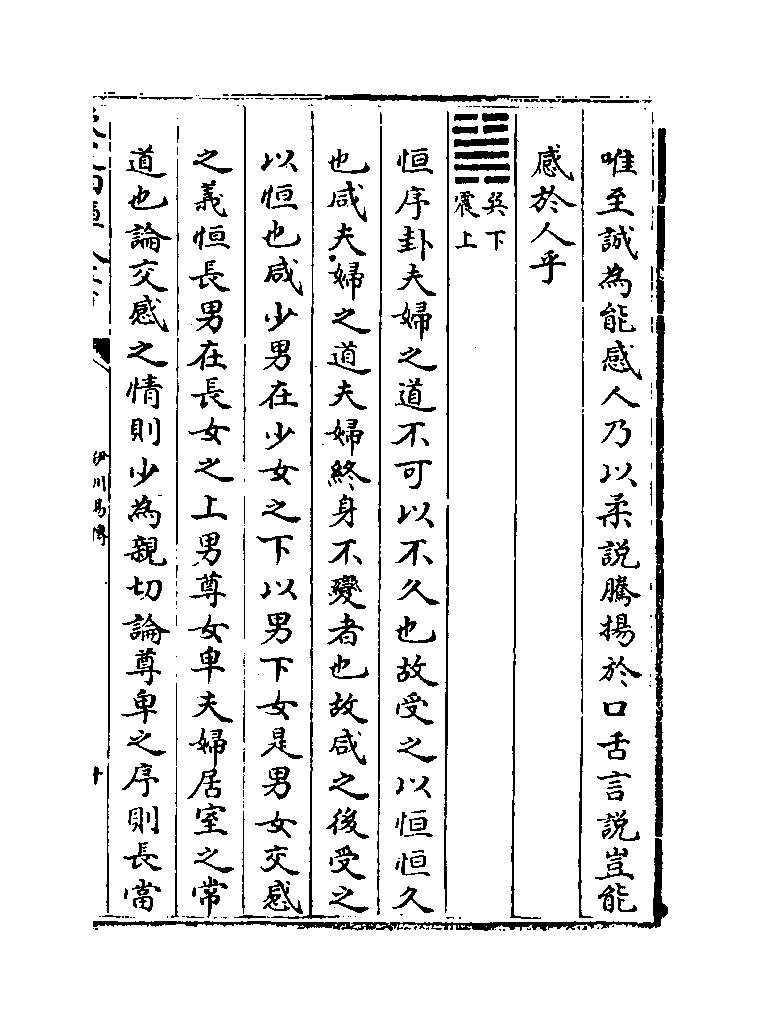 唯至誠為能感人乃以柔說騰揚於口舌言說豈能
感於人乎
巽下
震上
恒序卦夫婦之道不可以不久也故受之以恒恒久
也咸夫婦之道夫婦終身不變者也故咸之後受之
以恒也咸少男在少女之下以男下女是男女交感
之義恒長男在長女之上男尊女卑夫婦居室之常
道也論交感之情則少為親切論尊卑之序則長當
伊川易傳
十